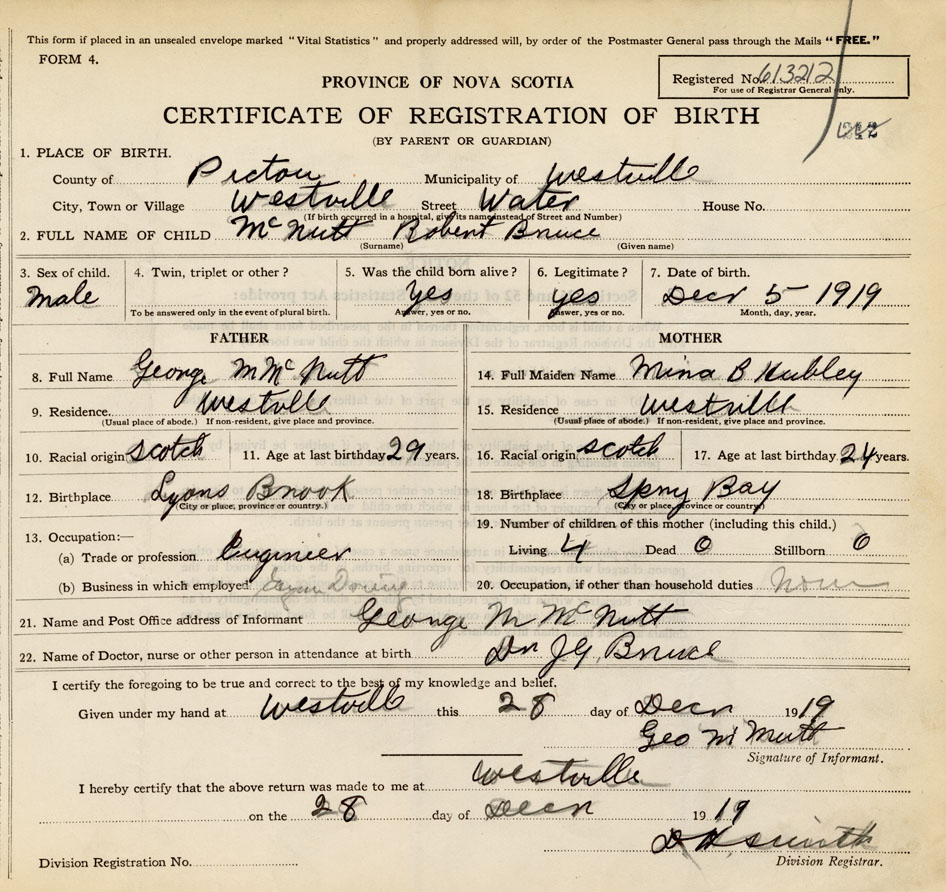 This form if placed in an unsealed envelope marked "Vital Statistics" and properly addressed will, by order of the Postmaster General pass through the Mails "FREE."
FORM 4.
PROVINCE OF NOVA SCOTIA
Registered No. 613212
For use of Registrar General only.
CERTIFICATE OF REGISTRATION OF BIRTH
(BY PARENT OR GUARDIAN)
1. PLACE OF BIRTH.
County of Pictou Municipality of Westville
City, Town or Village Westville Street Water House No.
(If birth occurred in a hospital, give its name instead of Street and Number)
2. FULL NAME OF CHILD McNutt Robert Bruce
(Surname) (Given name)
3. Sex of child. 4. Twin, triplet or other? 5. Was the child born alive? 6. Legitimate? 7. Date of birth.
Male Yes yes Decr 5 1919
To be answered only in the event of plural birth. Answer, yes or no. Answer, yes or no. Month, day, year.
FATHER MOTHER
8. Full Name George M McNutt 14. Full Maiden Name Mina B Hubley
9. Residence. Westville 15. Residence Westville
(Usual place of abode.) If non-resident, give place and province. (Usual place of abode.) If non-resident, give place and province.
10. Racial origin Scotch 11. Age at last birthday 29 years. 16. Racial origin Scotch 17. Age at last birthday 24 years.
12. Birthplace Lyons Brook 18. Birthplace Spry Bay
(City or place, province or country.) (City or place, province or country)
13. Occupation:— 19. Number of children of this mother (including this child.)
(a) Trade or profession Enginier Living 4 Dead 0 Stillborn 0
(b) Business in which employed 20. Occupation, if other than household duties None
21. Name and Post Office address of Informant George M McNutt
22. Name of Doctor, nurse or other person in attendance at birth Dr J G. Bruce
I certify the foregoing to be true and correct to the best of my knowledge and belief.
Given under my hand at Westville this 28 day of Decr 1919
Geo M McNutt
Signature of Informant.
I hereby certify that the above return was made to me at Westville
on the 28 day of Decr 1919
Smith
Division Registration No. Division Registrar.